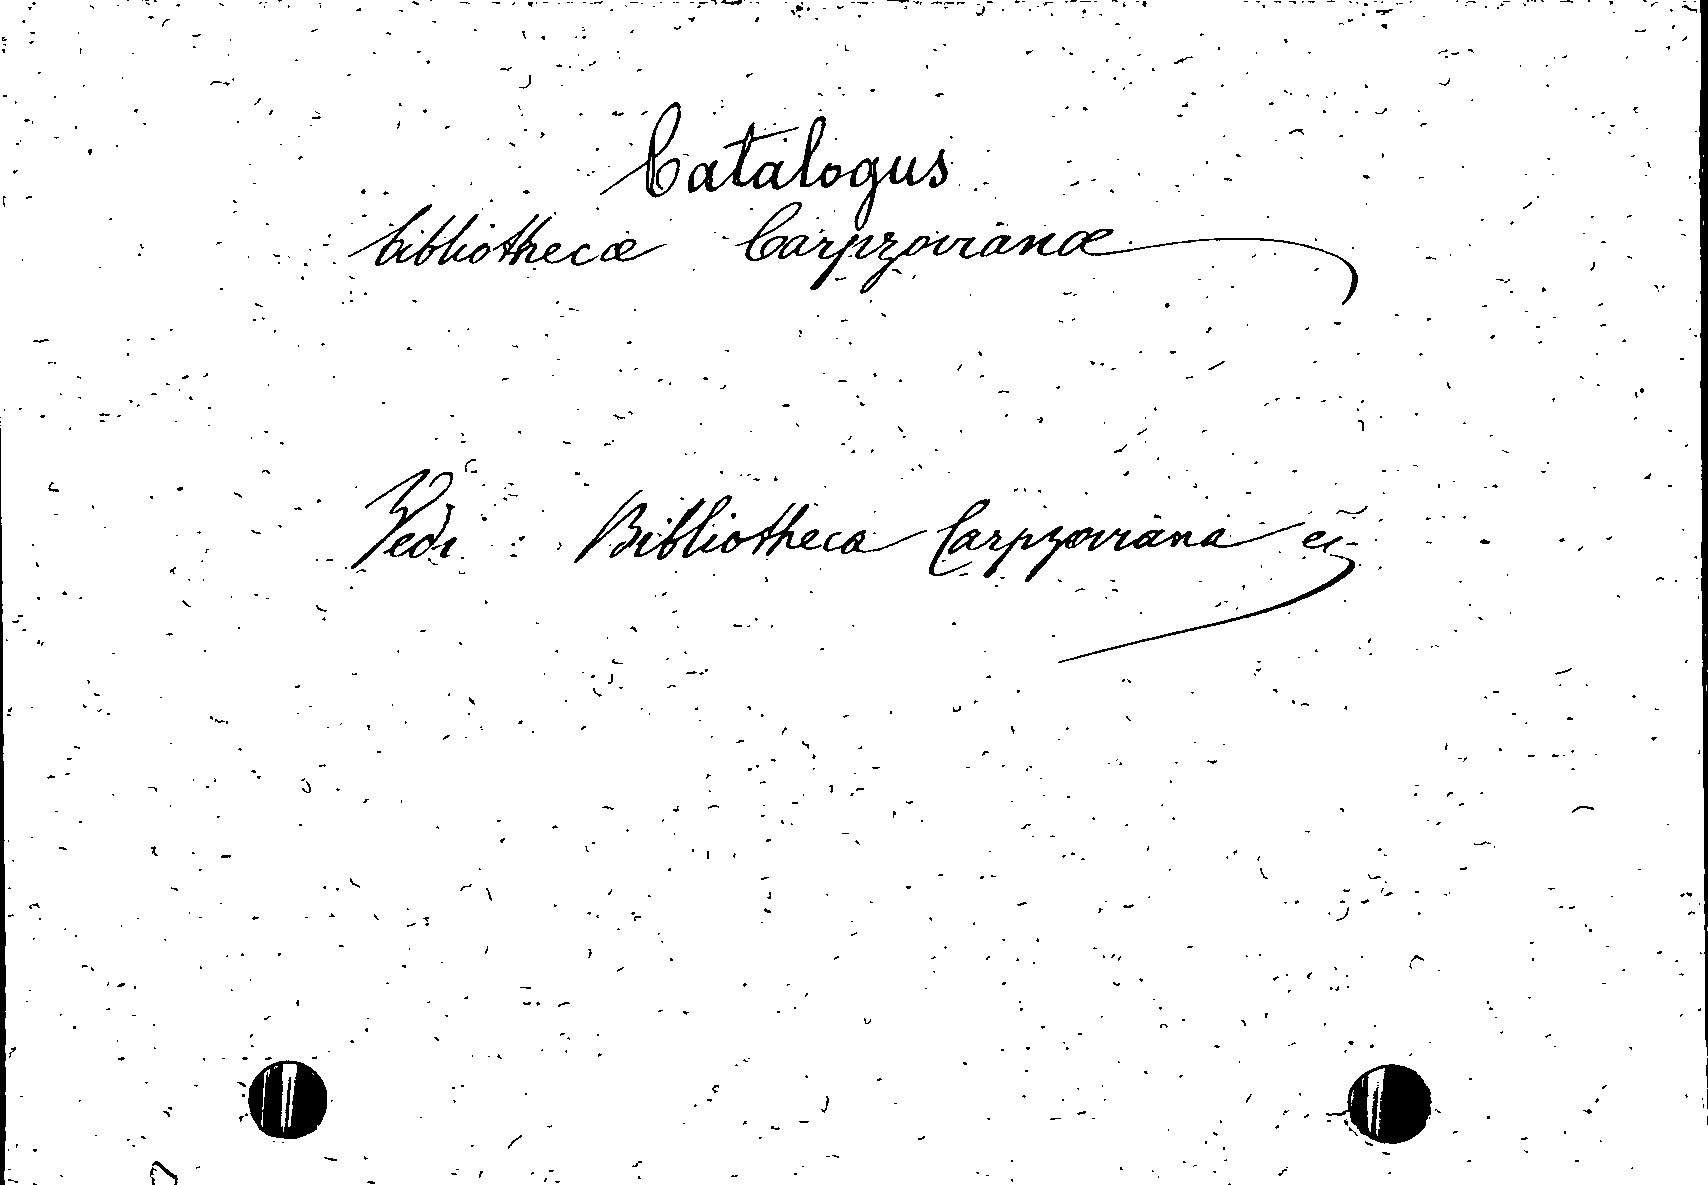 Catalogus
bibliothecæ Carpzovianæ
Vedi : Bibliotheca Carpzoviana